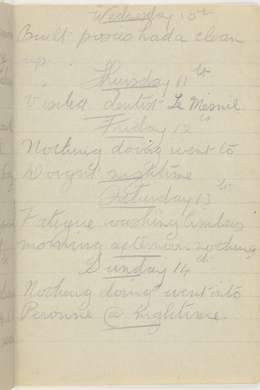 Wednesday 10th
Built posies had a clean
up.
Thursday 11th
Visited dentist Le Mesnil
Friday 12th
Nothing doing went to
Doignt nightime
Saturday 13th
Fatigue washing limbers
morning afternoon nothing
Sunday 14th
Nothing doing went into
Peronne @ nightime.